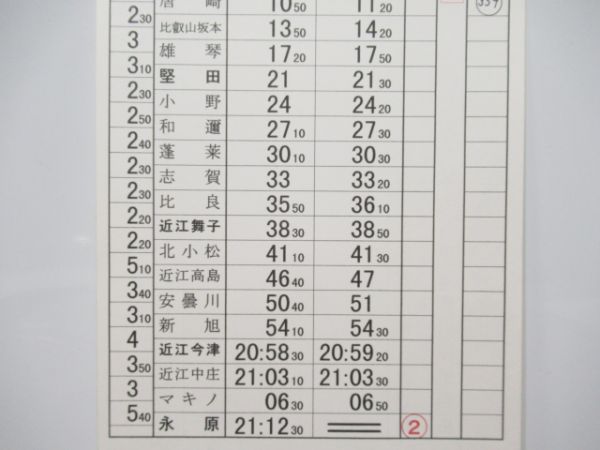 唐崎 10 50 11 20
2 30
比叡山坂本 13 50 14 20
3
雄琴 17 20 17 50
3 10
堅田 21 21 30
2 30
小野 24 24 20
2 50
和邇 27 10 27 30
2 40
蓬莱 30 10 30 30
2 30
志賀 33 33 20
2 30
比良 35 50 36 10
2 20
近江舞子 38 30 38 50
2 20
北小松 41 10 41 30
5 10
近江高島 46 40 47
3 40
安曇川 50 40 51
3 10
新旭 54 10 54 30
4
近江今津 20:58 30 20:59 20
3 50
近江中庄 21:03 10 21:03 30
3
マキノ 06 30 06 50
5 40
永原 21:12 30 ②